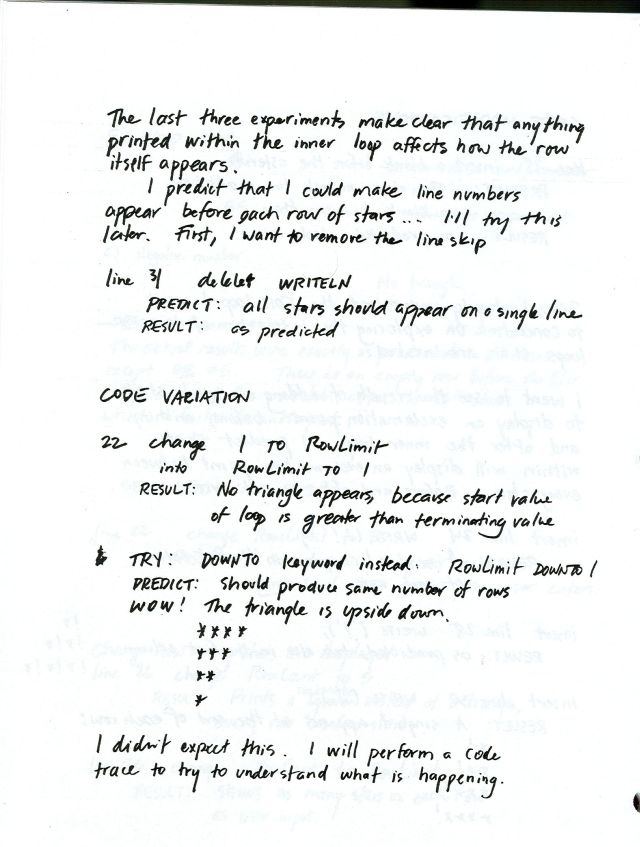 The last three experiments make clear that anything
printed within the inner loop affects how the row
itself appears.
I predict that I could make line numbers
appear before each row of stars... I'll try this
later. First, I want to remove the line skip
line 31 delete WRITELN
PREDICT: all stars should appear on a single line
RESULT: as predicted
CODE VARIATION
22 change 1 TO RowLimit
into RowLimit TO 1
RESULT: No triangle appears, because start value
of loop is greater than terminating value
TRY: DOWNTO keyword instead. RowLimit DOWNTO 1
PREDICT: should produce same number of rows
WOW! The triangle is upside down.
****
***
**
*
I didn't expect this. I will perform a code
trace to try to understand what is happening.